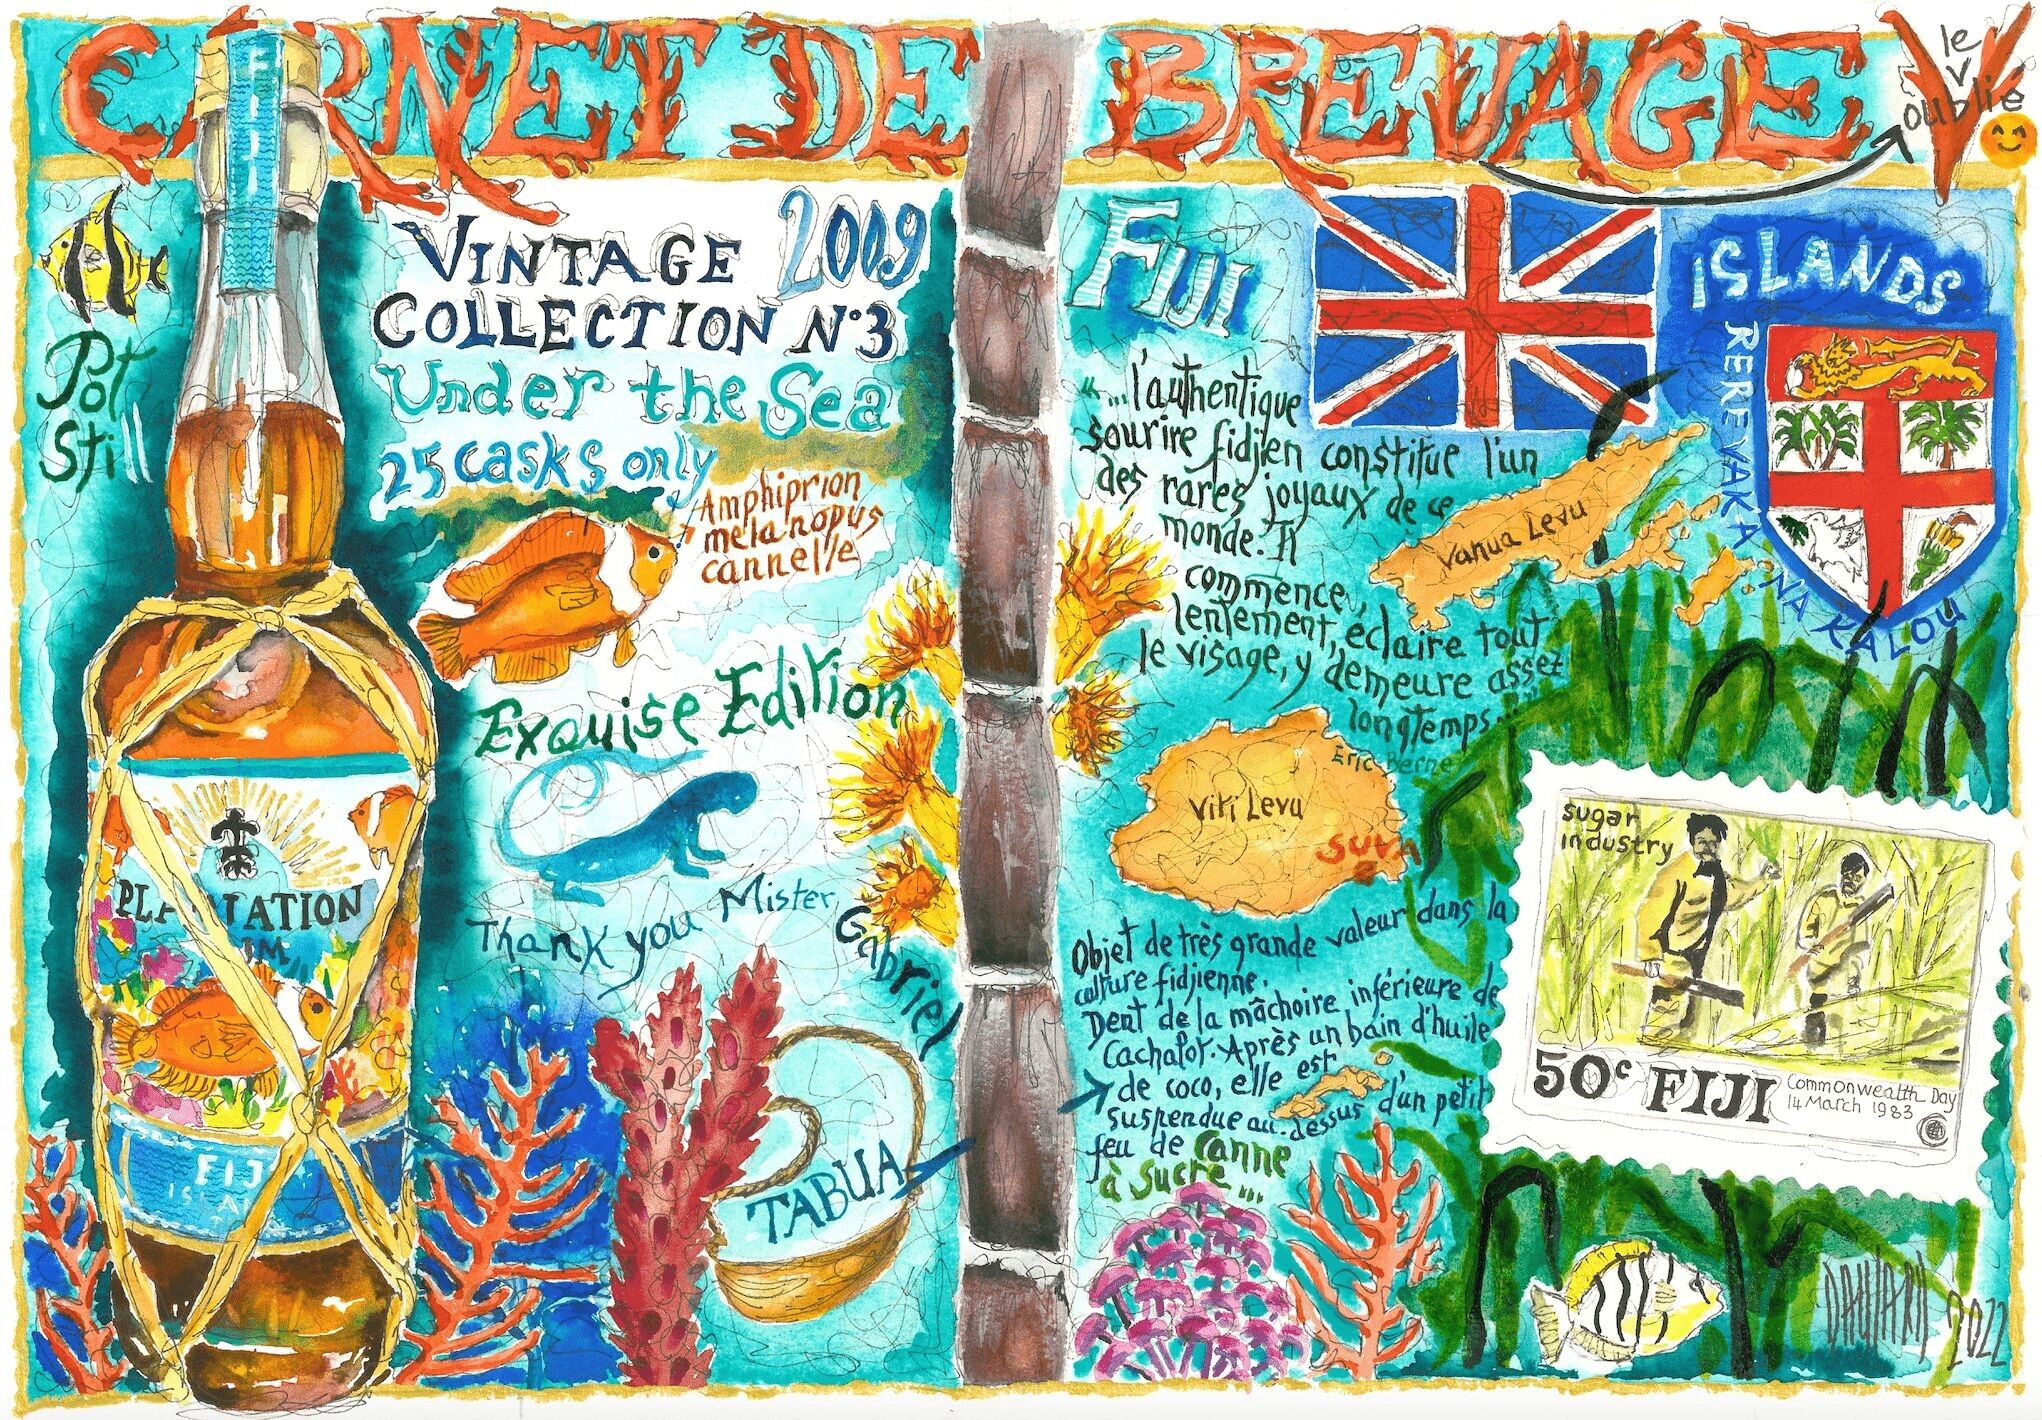 CARNET DE BREVAGE V
le
v
oublié
FIJI
Pot
Still
VINTAGE 2009
COLLECTION N°3
Under the Sea
25 casks only
Amphiprion
melanopus
cannelle
Exquise Edition
Thank you Mister
Gabriel
PLANTATION
FIJI
ISLANDS
TABUA
FIJI
ISLANDS
REREVAKA NA KALOU
"...l'authentique
sourire fidjien constitue l'un
des rares joyaux de ce
monde. Il
commence
lentement, éclaire tout
le visage, y demeure assez
longtemps...
Eric Berne
Vanua Levu
Viti Levu
SUVA
Objet de très grande valeur dans la
culture fidjienne.
Dent de la mâchoire inférieure de
Cachalot. Après un bain d'huile
de coco, elle est
suspendue au-dessus d'un petit
feu de canne
à sucre...
sugar
industry
50c FIJI
Commonwealth Day
14 March 1983
2022